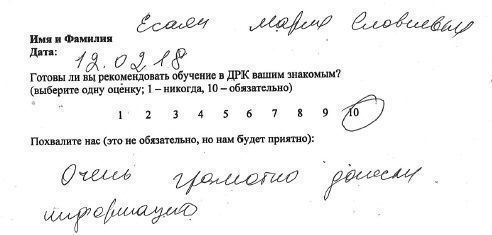 Есаян Мария
Имя и Фамилия
Дата: 12.02.18
Готовы ли вы рекомендовать обучение в ДРК вашим знакомым?
(выберите одну оценку; 1 – никогда, 10 – обязательно)
1 2 3 4 5 6 7 8 9 10
Похвалите нас (это не обязательно, но нам будет приятно):
Очень грамотно донесли
информацию